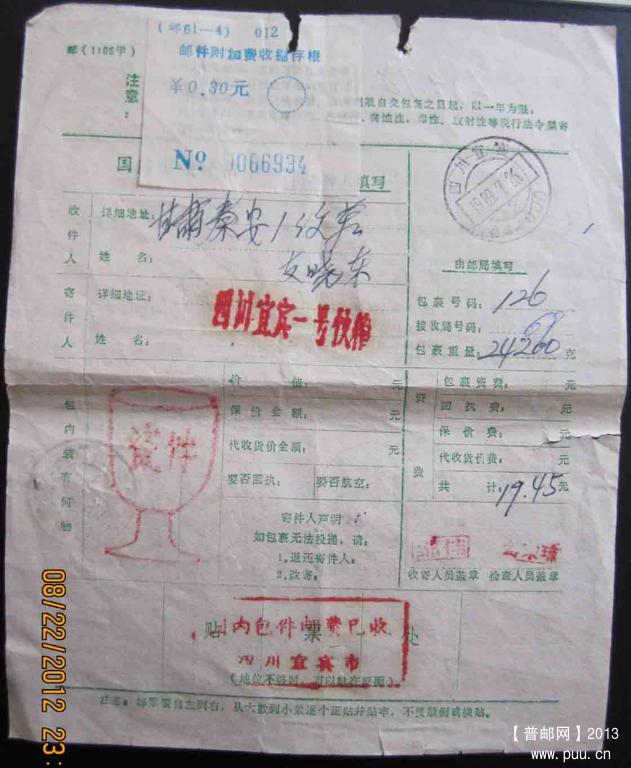 (邮61—4) 012
邮件附加费收据存根
¥0.30元
№ 0066934
邮(1106甲)
注意:
限自交包裹之日起,以一年为限。
腐蚀性、毒性、放射性等现行法令禁寄
国
填写
四川宜宾
收件人
详细地址:
甘肃秦安1
姓名:
文晓东
寄件人
详细地址:
四川宜宾一号信箱
姓名:
由邮局填写
包裹号码:126
接收局号码:
包裹重量:24260克
包内装有何物
瓷件
价值: 元
保价金额: 元
代收货价金额: 元
要否回执: 要否航空:
资费
包裹资费: 元
回执费: 元
保价费: 元
代收货价费: 元
共计:19.45元
寄件人声明
如包裹无法投递,请:
1.退还寄件人;
2.改寄:
收寄人员盖章 检查人员盖章
贴票处
国内包件邮费已收
四川宜宾市
(地位不够时,可以贴在反面)
注意:邮票要自左到右,从大数到小数逐个正贴并贴牢,不要颠倒或横贴。
08/22/2012 23:
【普邮网】2013
www.puu.cn